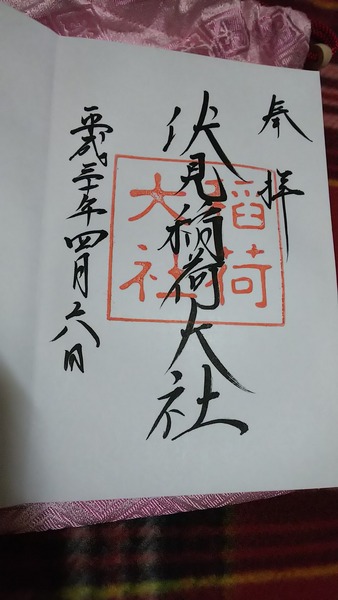 奉拝
伏見稲荷大社
稲荷
大社
平成三十年四月六日